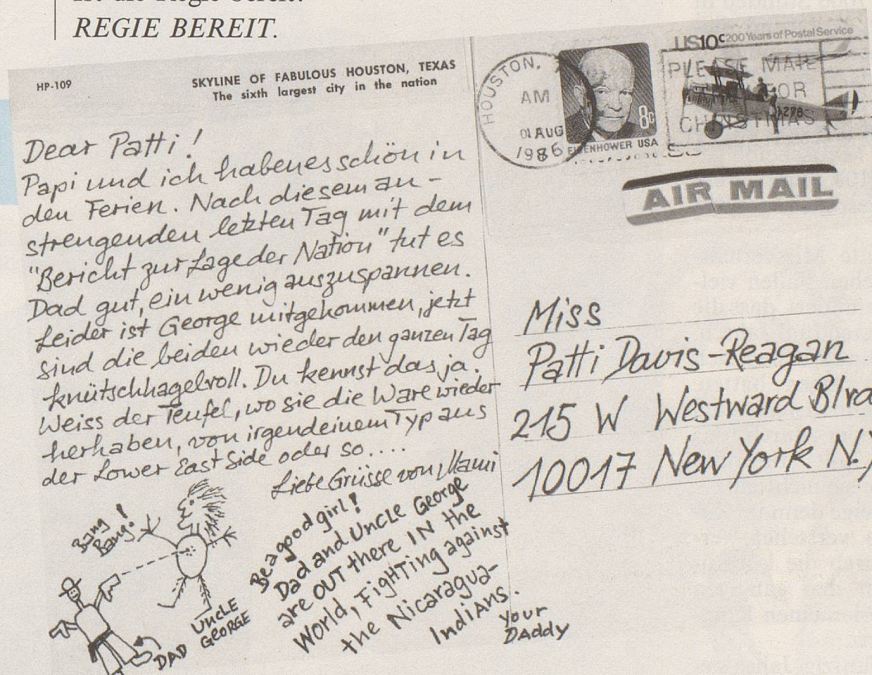 REGIE BEREIT.
HP-109
SKYLINE OF FABULOUS HOUSTON, TEXAS
The sixth largest city in the nation
Dear Patti!
Papi und ich haben es schön in
den Ferien. Nach diesem an-
strengenden letzten Tag mit dem
"Bericht zur Lage der Nation" tut es
Dad gut, ein wenig auszuspannen.
Leider ist George mitgekommen, jetzt
sind die beiden wieder den ganzen Tag
knütschhagelvoll. Du kennst das ja.
Weiss der Teufel, wo sie die Ware wieder
herhaben, von irgendeinem Typ aus
der Lower East Side oder so....
Liebe Grüsse von Mami
Bang
Bang!
DAD
UNCLE
GEORGE
Be a good girl!
Dad and Uncle George
are OUT there IN the
World, FighTing against
the Nicaragua-
Indians.
your
DADDY
HOUSTON,
AM
01 AUG
1986
8c
EISENHOWER USA
US10c 200 Years of Postal Service
PLEASE MAIL
FOR
CHRISTMAS
AIR MAIL
Miss
Patti Davis-Reagan
215 W Westward Blvd
10017 New York N.Y